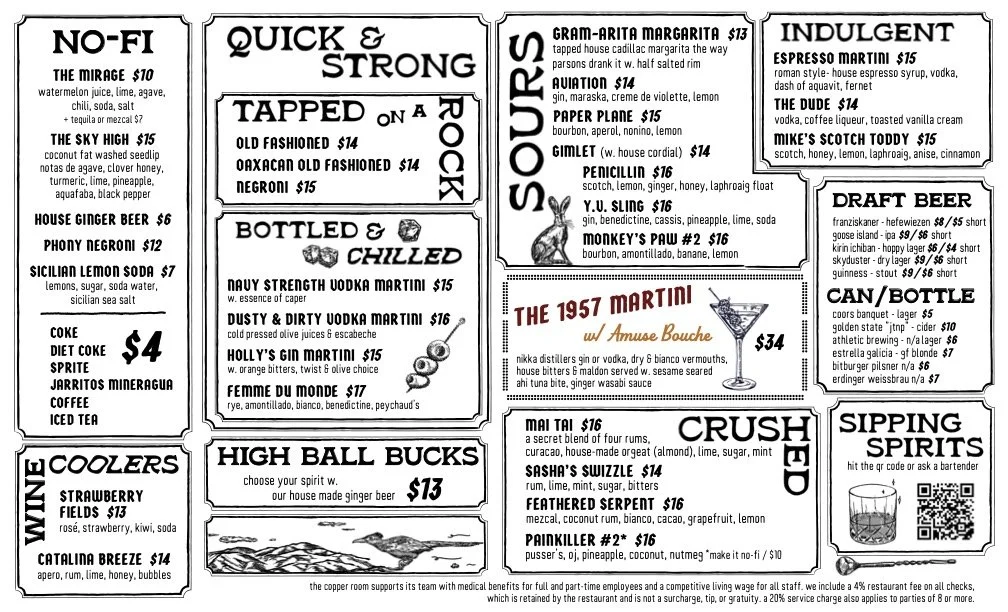 NO-FI
THE MIRAGE $10
watermelon juice, lime, agave,
chili, soda, salt
+ tequila or mezcal $7
THE SKY HIGH $15
coconut fat washed seedlip
notas de agave, clover honey,
turmeric, lime, pineapple,
aquafaba, black pepper
HOUSE GINGER BEER $6
PHONY NEGRONI $12
SICILIAN LEMON SODA $7
lemons, sugar, soda water,
sicilian sea salt
COKE
DIET COKE
SPRITE
JARRITOS MINERAGUA
COFFEE
ICED TEA
$4
WINE COOLERS
STRAWBERRY
FIELDS $13
rosé, strawberry, kiwi, soda
CATALINA BREEZE $14
apero, rum, lime, honey, bubbles
QUICK &
STRONG
TAPPED ON A ROCK
OLD FASHIONED $14
OAXACAN OLD FASHIONED $14
NEGRONI $15
BOTTLED &
CHILLED
NAVY STRENGTH VODKA MARTINI $15
w. essence of caper
DUSTY & DIRTY VODKA MARTINI $16
cold pressed olive juices & escabeche
HOLLY'S GIN MARTINI $15
w. orange bitters, twist & olive choice
FEMME DU MONDE $17
rye, amontillado, bianco, benedictine, peychaud's
HIGH BALL BUCKS
choose your spirit w.
our house made ginger beer
$13
SOURS
GRAM-ARITA MARGARITA $13
tapped house cadillac margarita the way
parsons drank it w. half salted rim
AVIATION $14
gin, maraska, creme de violette, lemon
PAPER PLANE $15
bourbon, aperol, nonino, lemon
GIMLET (w. house cordial) $14
PENICILLIN $16
scotch, lemon, ginger, honey, laphroaig float
Y.U. SLING $16
gin, benedictine, cassis, pineapple, lime, soda
MONKEY'S PAW #2 $16
bourbon, amontillado, banane, lemon
THE 1957 MARTINI
w/ Amuse Bouche
$34
nikka distillers gin or vodka, dry & bianco vermouths,
house bitters & maldon served w. sesame seared
ahi tuna bite, ginger wasabi sauce
CRUSHED
MAI TAI $16
a secret blend of four rums,
curacao, house-made orgeat (almond), lime, sugar, mint
SASHA'S SWIZZLE $14
rum, lime, mint, sugar, bitters
FEATHERED SERPENT $16
mezcal, coconut rum, bianco, cacao, grapefruit, lemon
PAINKILLER #2* $16
pusser's, oj, pineapple, coconut, nutmeg *make it no-fi / $10
INDULGENT
ESPRESSO MARTINI $15
roman style- house espresso syrup, vodka,
dash of aquavit, fernet
THE DUDE $14
vodka, coffee liqueur, toasted vanilla cream
MIKE'S SCOTCH TODDY $15
scotch, honey, lemon, laphroaig, anise, cinnamon
DRAFT BEER
franziskaner - hefewiezen $8/$5 short
goose island - ipa $9/$6 short
kirin ichiban - hoppy lager $6/$4 short
skyduster - dry lager $9/$6 short
guinness - stout $9/$6 short
CAN/BOTTLE
coors banquet - lager $5
golden state "jtnp" - cider $10
athletic brewing - n/a lager $6
estrella galicia - gf blonde $7
bitburger pilsner n/a $6
erdinger weissbrau n/a $7
SIPPING
SPIRITS
hit the qr code or ask a bartender
the copper room supports its team with medical benefits for full and part-time employees and a competitive living wage for all staff. we include a 4% restaurant fee on all checks,
which is retained by the restaurant and is not a surcharge, tip, or gratuity. a 20% service charge also applies to parties of 8 or more.